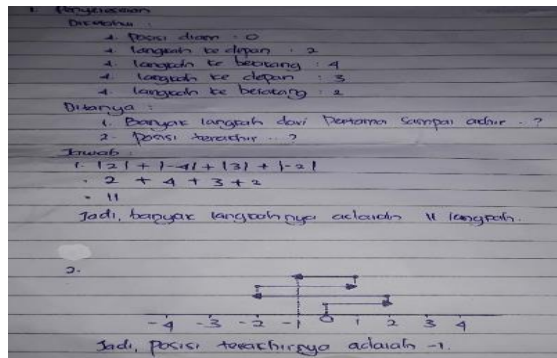 1. Penyelesaian
Diketahui :
1. Posisi diam : 0
2. langkah ke depan : 2
3. langkah ke belakang : 4
4. langkah ke depan : 3
4. langkah ke belakang : 2
Ditanya :
1. Banyak langkah dari Pertama Sampai akhir . ?
2. Posisi terakhir .. ?
Jawab :
1. |2| + |-4| + |3| + |-2|
= 2 + 4 + 3 + 2
= 11
Jadi, banyak langkahnya adalah 11 langkah.
2.
-4 -3 -2 -1 0 1 2 3 4
Jadi, Posisi terakhirnya adalah -1.